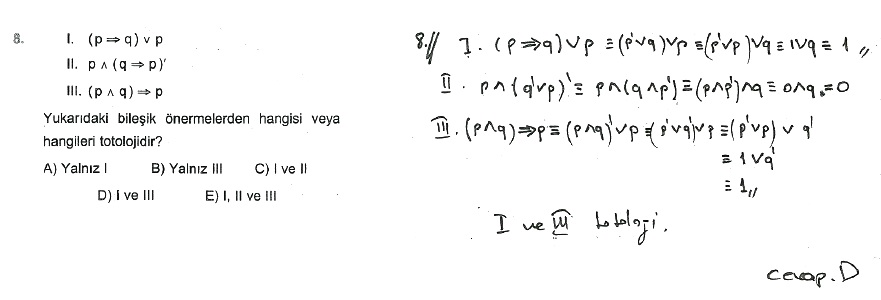 8. I. (p ⇒ q) ∨ p
II. p ∧ (q ⇒ p)'
III. (p ∧ q) ⇒ p
Yukarıdaki bileşik önermelerden hangisi veya
hangileri totolojidir?
A) Yalnız I B) Yalnız III C) I ve II
D) I ve III E) I, II ve III
8.// I. (p ⇒ q) ∨ p ≡ (p' ∨ q) ∨ p ≡ (p' ∨ p) ∨ q ≡ 1 ∨ q ≡ 1 //
II. p ∧ (q' ∨ p)' ≡ p ∧ (q ∧ p') ≡ (p ∧ p') ∧ q ≡ 0 ∧ q = 0
III. (p ∧ q) ⇒ p ≡ (p ∧ q)' ∨ p ≡ (p' ∨ q') ∨ p ≡ (p' ∨ p) ∨ q'
≡ 1 ∨ q'
≡ 1 //
I ve III totoloji.
cevap. D